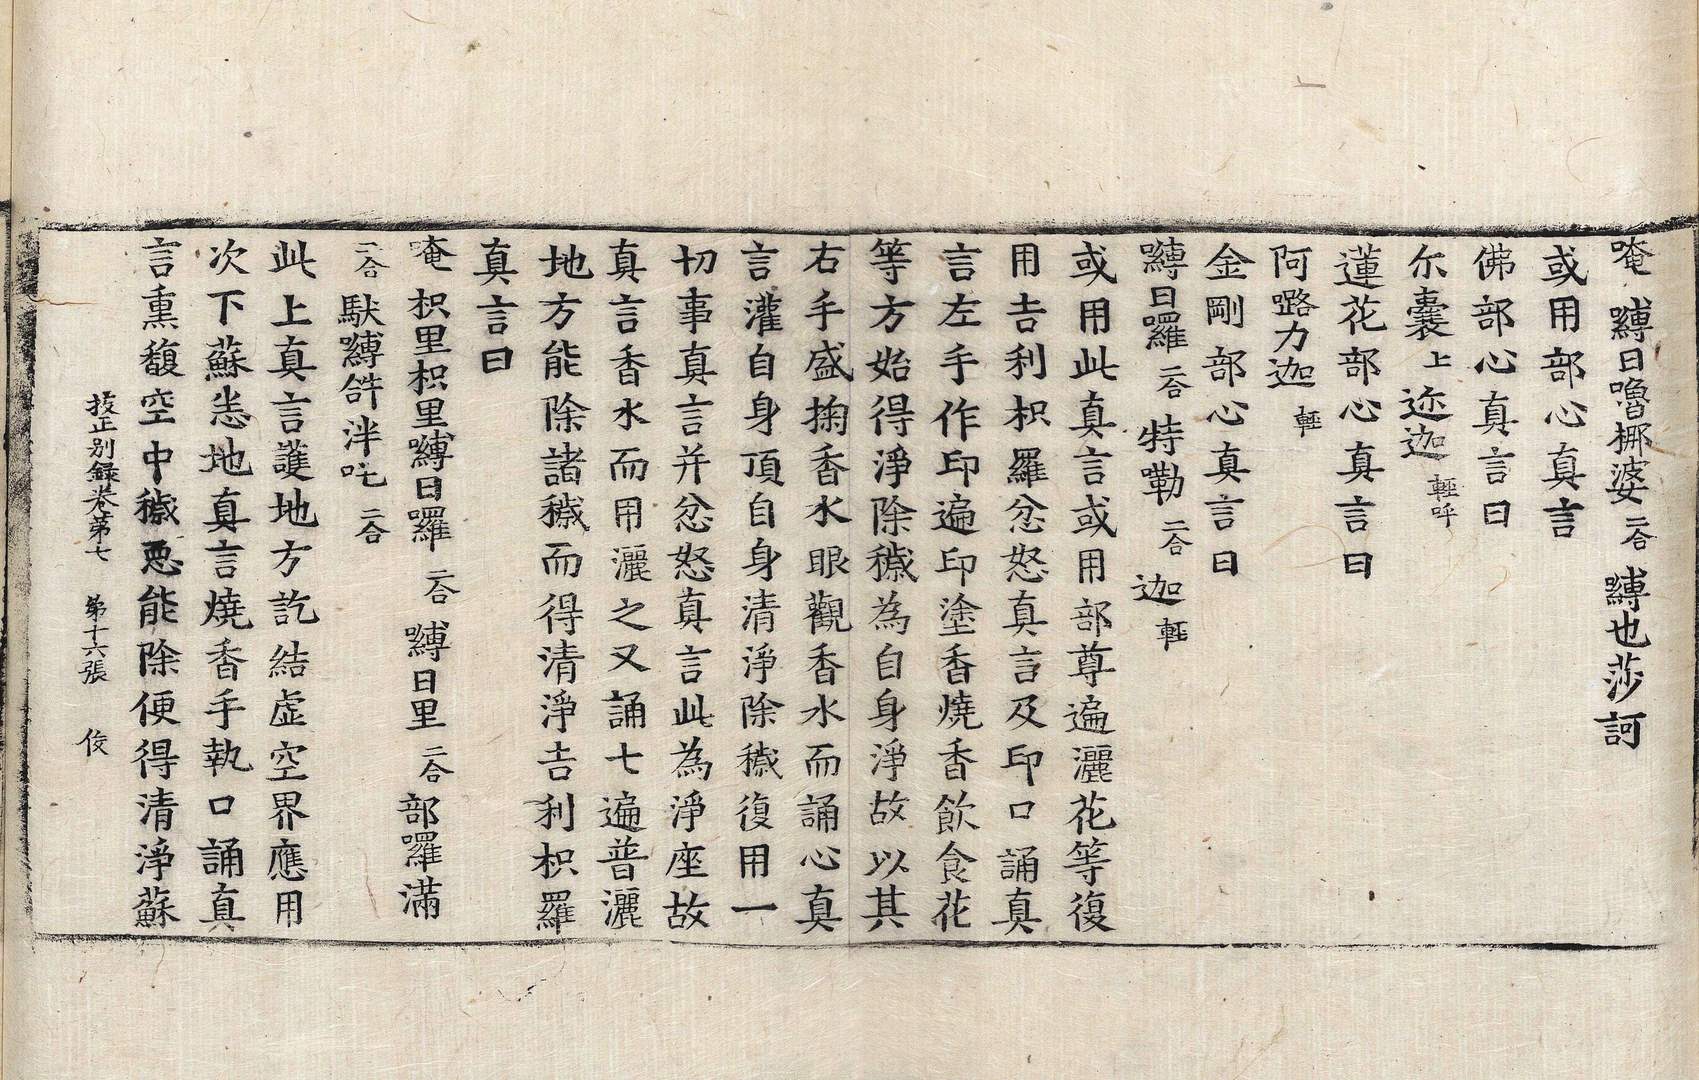 唵 嚩日嚕娜婆 二合 嚩也莎訶
或用部心真言
佛部心真言曰
尔囊 上 迩迦 輕呼
蓮花部心真言曰
阿路力迦 輕
金剛部心真言曰
嚩日囉 二合 特勒 二合 迦 輕
或用此真言或用部尊遍灑花等復
用吉利枳羅忿怒真言及印口誦真
言左手作印遍印塗香燒香飲食花
等方始得淨除穢為自身淨故以其
右手盛掬香水眼觀香水而誦心真
言灌自身頂自身清淨除穢復用一
切事真言并忿怒真言此為淨座故
真言香水而用灑之又誦七遍普灑
地方能除諸穢而得清淨吉利枳羅
真言曰
唵 枳里枳里嚩日囉 二合 嚩日里 二合 部囉滿
二合 馱嚩𤙖泮吒 二合
此上真言護地方訖結虛空界應用
次下蘇悉地真言燒香手執口誦真
言熏馥空中穢惡能除便得清淨蘇
挍正別録卷第七 第十六張 俊